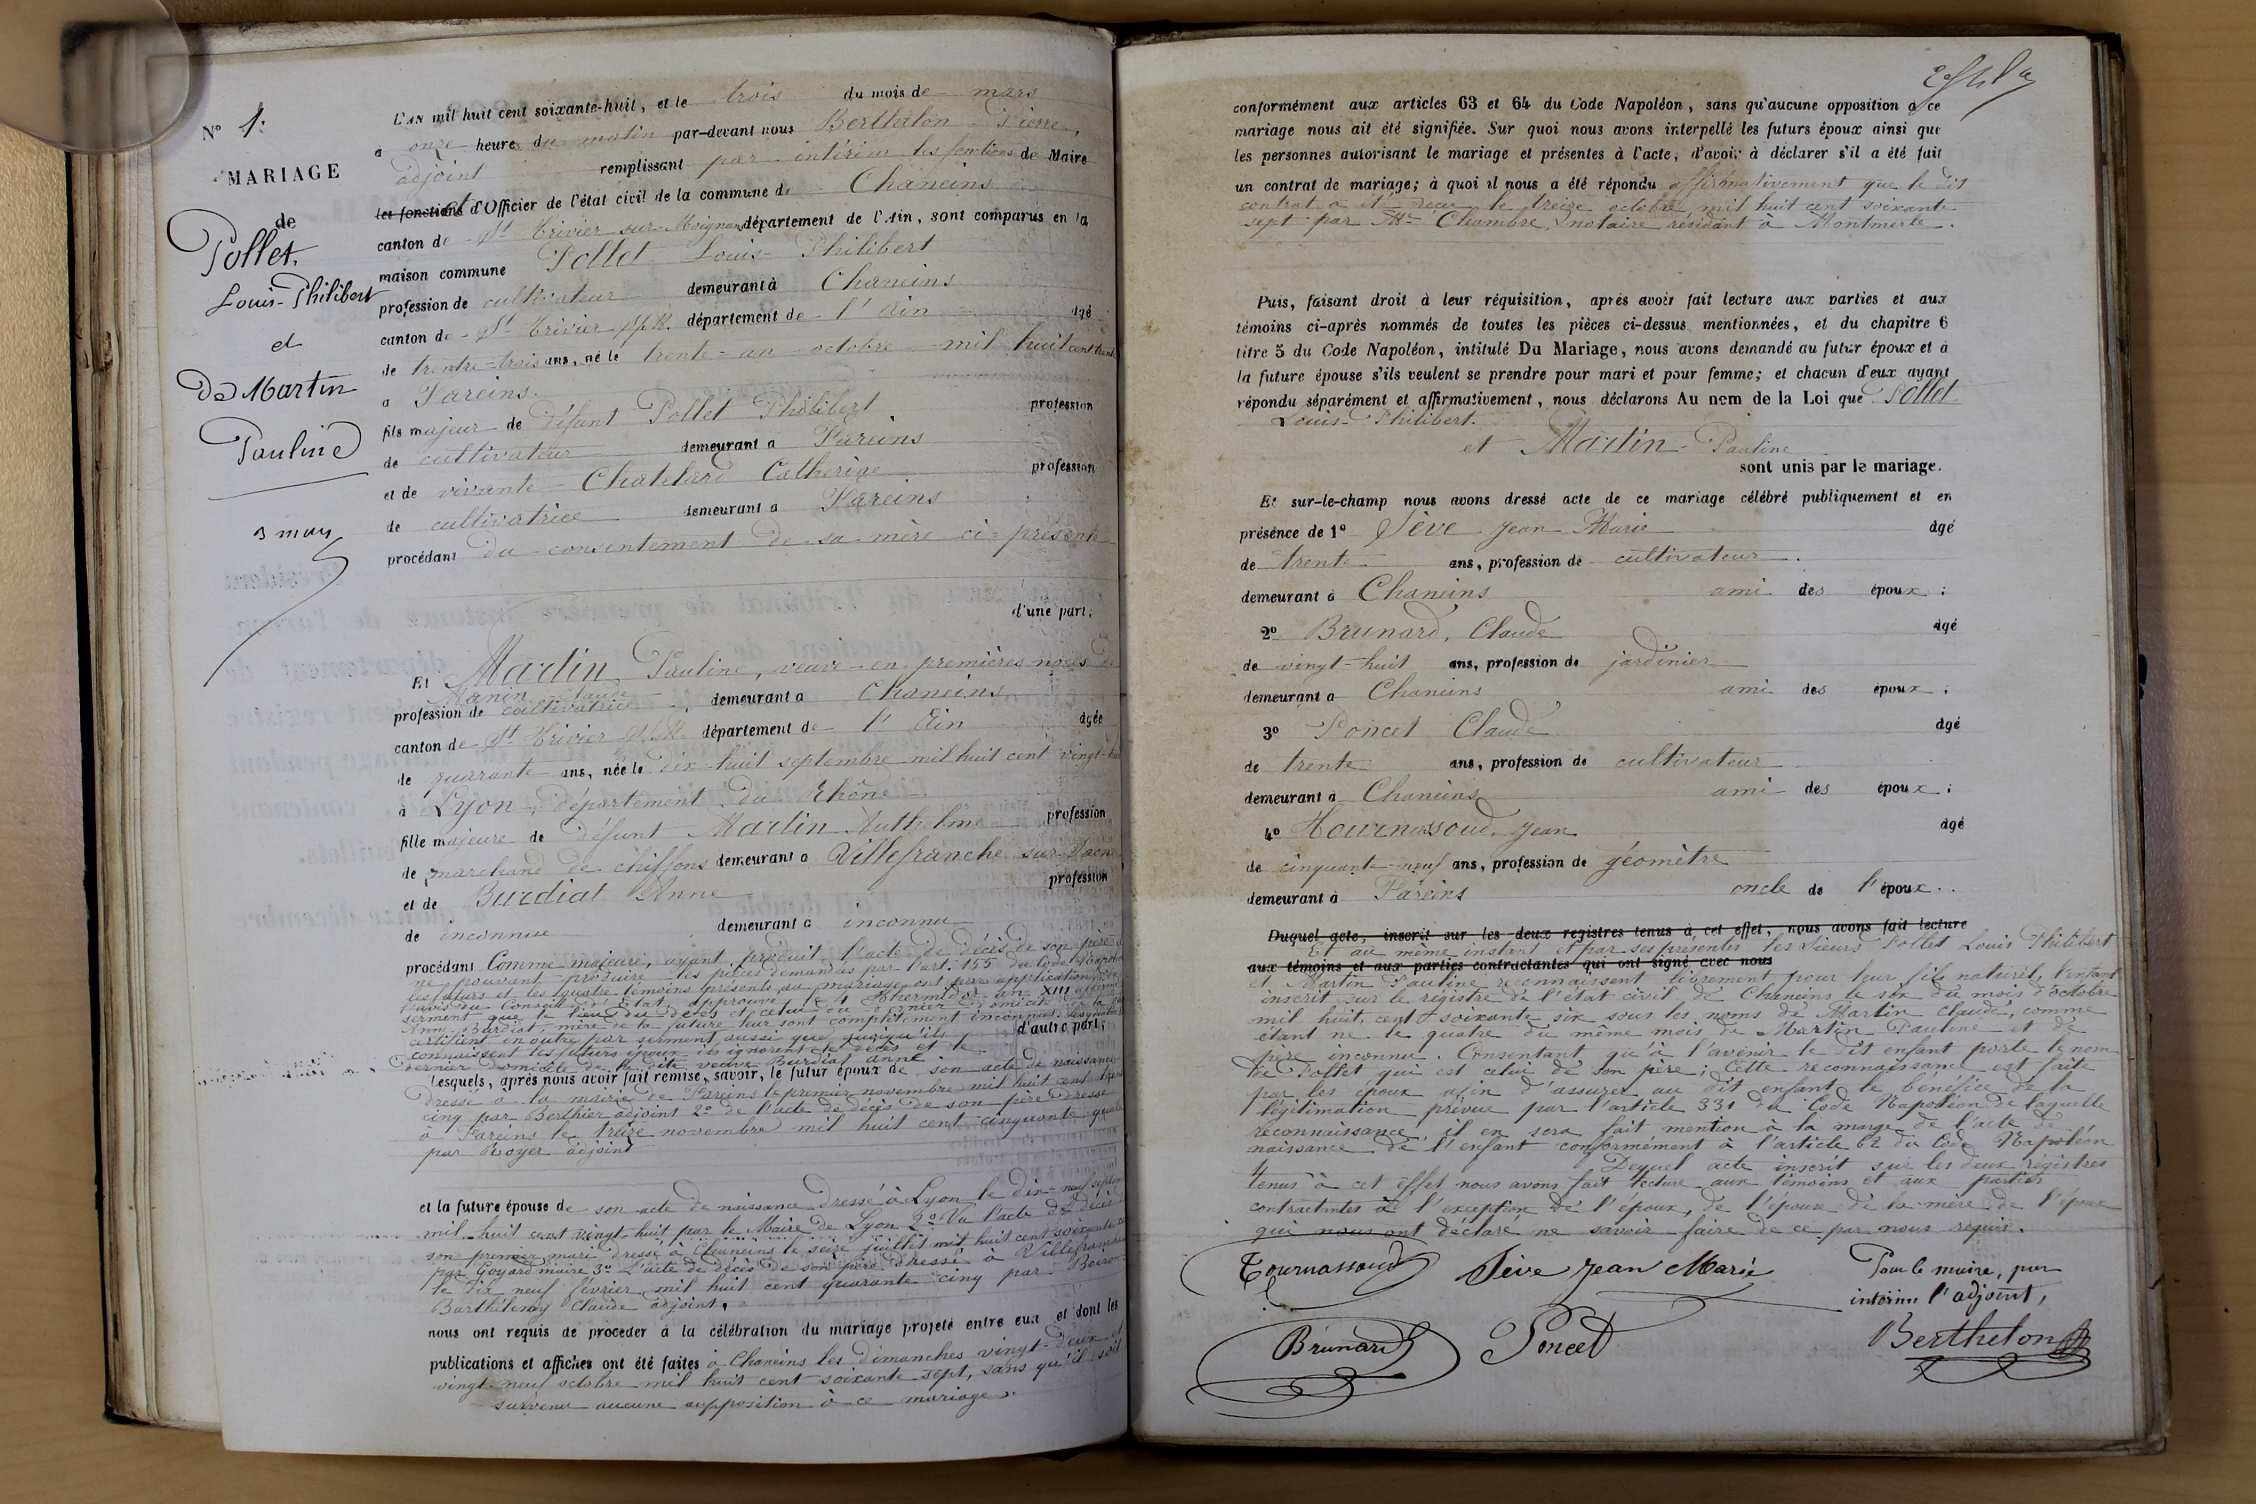 N° 1.
MARIAGE
de
Pollet,
Louis-Philibert
et
De Martin
Pauline
3 mars
L'AN mil huit cent soixante-huit, et le trois du mois de mars
a onze heure du matin par-devant nous Berthelon Pierre,
adjoint remplissant par intérim les fonctions de Maire
les fonctions et d'Officier de l'état civil de la commune de Chaneins
canton de St Trivier sur Moignans département de l'Ain, sont comparus en la
maison commune Pollet Louis-Philibert
profession de cultivateur demeurant à Chaneins
canton de St Trivier S/M. département de l'Ain âgé
de trente-trois ans, né le trente-un octobre mil huit cent trente
a Fareins.
fils majeur de défunt Pollet Philibert profession
de cultivateur demeurant a Fareins
et de vivante Chatelard Catherine profession
de cultivatrice demeurant a Fareins
procédant du consentement de sa mère ci-présente
d'une part;
Et Martin Pauline, veuve en premières noces de
Manin Claude
profession de cultivatrice, demeurant a Chaneins
canton de St Trivier S/M. département de l'Ain âgée
de quarante ans, née le dix-huit septembre mil huit cent vingt-huit
à Lyon, département du Rhône
fille majeure de défunt Martin Anthelme profession
de marchand de chiffons demeurant a Villefranche sur Saône
et de Burdiat Anne profession
de inconnue demeurant a inconnu
procédant Comme majeure, ayant produit l'acte de décès de son père
ne pouvant produire les pièces demandées par l'art. 155 du Code Napoléon
les futurs et les quatre témoins présents au mariage ont par application de
l'avis du Conseil d'Etat, approuvé le 4 Thermidor an XIII affirmé
serment que le lieu du décès et celui du dernier domicile de la
Anne Burdiat, mère de la future leur sont complètement inconnus. Les quatre
certifient en outre par serment aussi que quoiqu'ils d'autre part;
connaissent les futurs époux ils ignorent le décès et le
dernier domicile de la dite veuve Burdiat Anne
Lesquels, après nous avoir fait remise, savoir, le futur époux de son acte de naissance
dressé à la mairie de Fareins le premier novembre mil huit cent trente
cinq par Berthier adjoint 2° de l'acte de décès de son père dressé
à Fareins le treize novembre mil huit cent cinquante quatre
par Royer adjoint
et la future épouse de son acte de naissance dressé à Lyon le dix-neuf septembre
mil huit cent vingt-huit par le Maire de Lyon 2° Vu l'acte de décès
son premier mari dressé à Chaneins le seize juillet mil huit cent soixante
par Goyard maire 3° L'acte de décès de son père dressé à Villefranche
le dix neuf février mil huit cent quarante cinq par
Barthélemy Claude adjoint,
nous ont requis de proceder à la célébration du mariage projeté entre eux et dont les
publications et affiches ont été faites à Chaneins les dimanches vingt-deux et
vingt-neuf octobre mil huit cent soixante sept, sans qu'il soit
survenu aucune opposition à ce mariage.
conformément aux articles 63 et 64 du Code Napoléon, sans qu'aucune opposition à ce
mariage nous ait été signifiée. Sur quoi nous avons interpellé les futurs époux ainsi que
les personnes autorisant le mariage et présentes à l'acte, d'avoir à déclarer s'il a été fait
un contrat de mariage; à quoi il nous a été répondu affirmativement que le dit
contrat a été reçu le treize octobre mil huit cent soixante
sept par Me Chambre, notaire résidant à Montmerle.
Puis, faisant droit à leur réquisition, après avoir fait lecture aux parties et aux
témoins ci-après nommés de toutes les pièces ci-dessus mentionnées, et du chapitre 6
titre 5 du Code Napoléon, intitulé Du Mariage, nous avons demandé au futur époux et à
la future épouse s'ils veulent se prendre pour mari et pour femme; et chacun d'eux ayant
répondu séparément et affirmativement, nous déclarons Au nom de la Loi que Pollet
Louis-Philibert.
et Martin Pauline
sont unis par le mariage.
Et sur-le-champ nous avons dressé acte de ce mariage célébré publiquement et en
présence de 1° Sève Jean Marie âgé
de trente ans, profession de cultivateur.
demeurant à Chaneins ami des époux;
2° Brunard, Claude âgé
de vingt-huit ans, profession de jardinier
demeurant a Chaneins ami des époux;
3° Poncet Claude âgé
de trente ans, profession de cultivateur
demeurant a Chaneins ami des époux;
4° Tournassoud, Jean âgé
de cinquante-neuf ans, profession de géomètre
demeurant à Fareins oncle de l'époux.
Duquel acte, inscrit sur les deux registres tenus à cet effet, nous avons fait lecture
Et au même instant et par ses présentes les sieurs Pollet Louis Philibert
aux témoins et aux parties contractantes qui ont signé avec nous
et Martin Pauline reconnaissent librement pour leur fils naturel, l'enfant
inscrit sur le registre de l'état civil de Chaneins le six du mois d'octobre
mil huit cent soixante six sous les noms de Martin Claude, comme
étant né le quatre du même mois de Martin Pauline et de
père inconnu. Consentant qu'à l'avenir le dit enfant porte le nom
de Pollet qui est celui de son père; Cette reconnaissance est faite
par les époux afin d'assurer au dit enfant le bénéfice de la
légitimation prévue par l'article 331 du Code Napoléon de laquelle
reconnaissance il en sera fait mention à la marge de l'acte de
naissance de l'enfant conformément à l'article 62 du Code Napoléon
Dequel acte inscrit sur les deux registres
tenus à cet effet nous avons fait lecture aux témoins et aux parties
contractantes à l'exception de l'époux, de l'épouse de la mère de l'époux
qui nous ont déclaré ne savoir faire de ce par nous requis.
Tournassoud Sève Jean Marie Pour le maire, par
intérim l'adjoint,
Brunard Poncet Berthelon